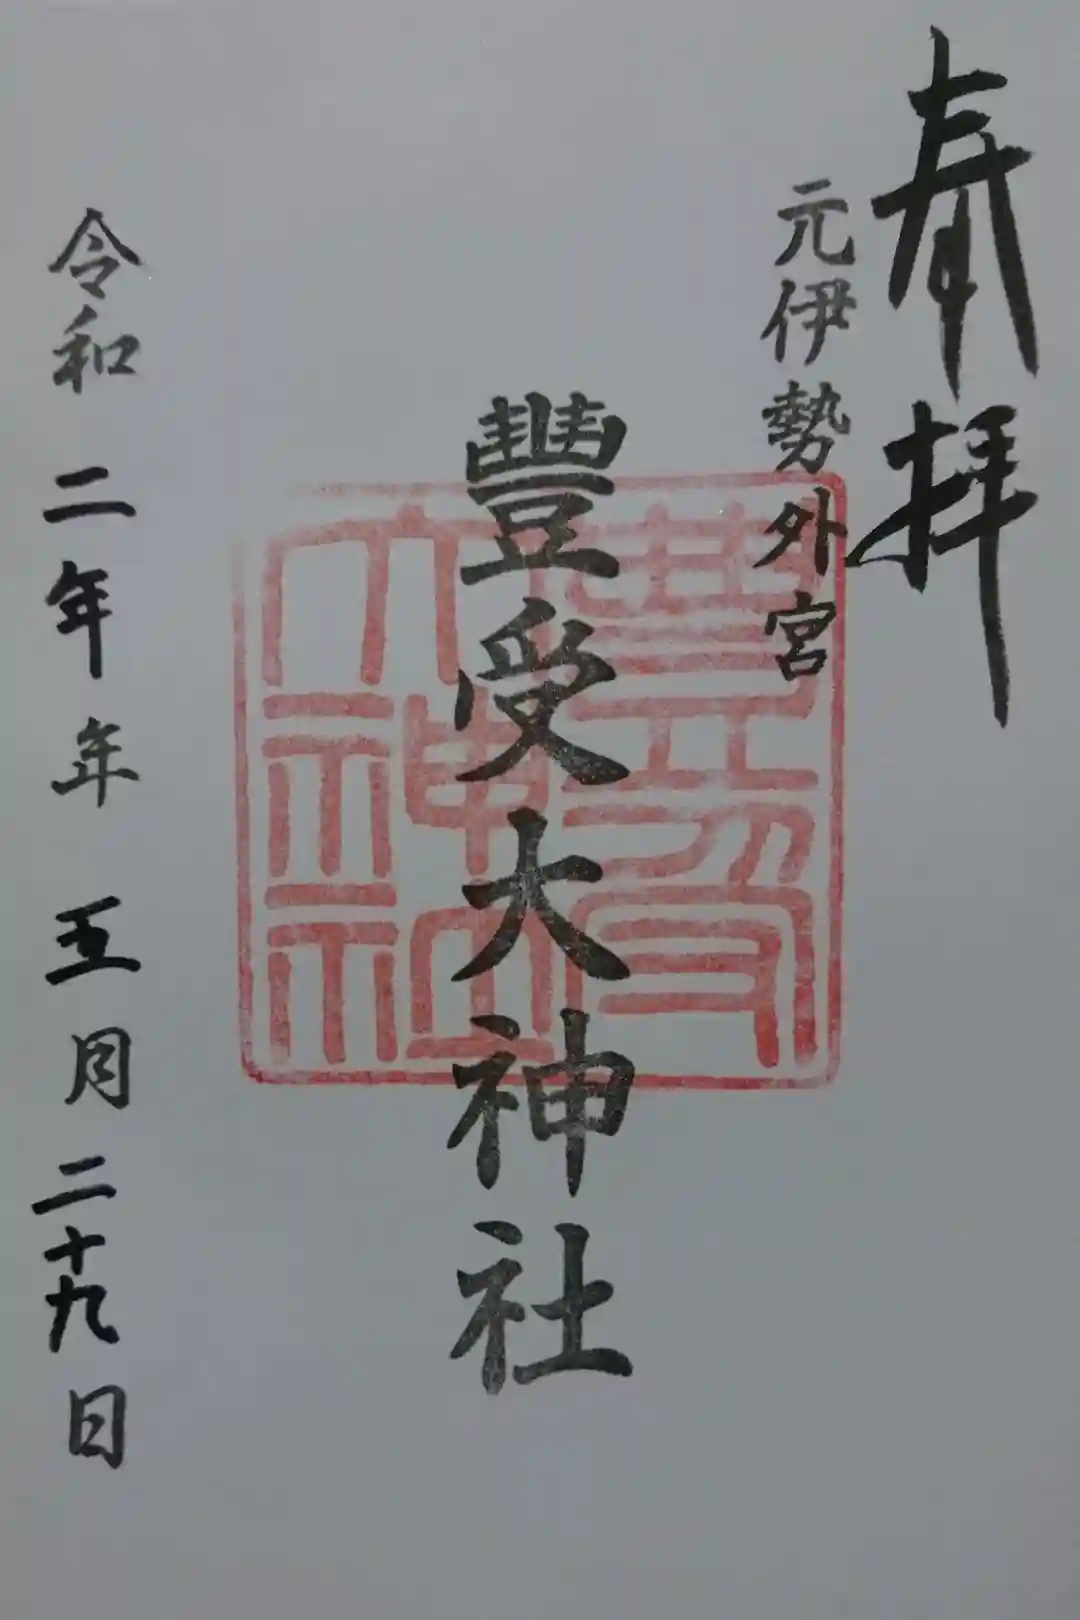 奉拝
元伊勢外宮
豐受大神社
豊受大神社
令和二年年五月二十九日